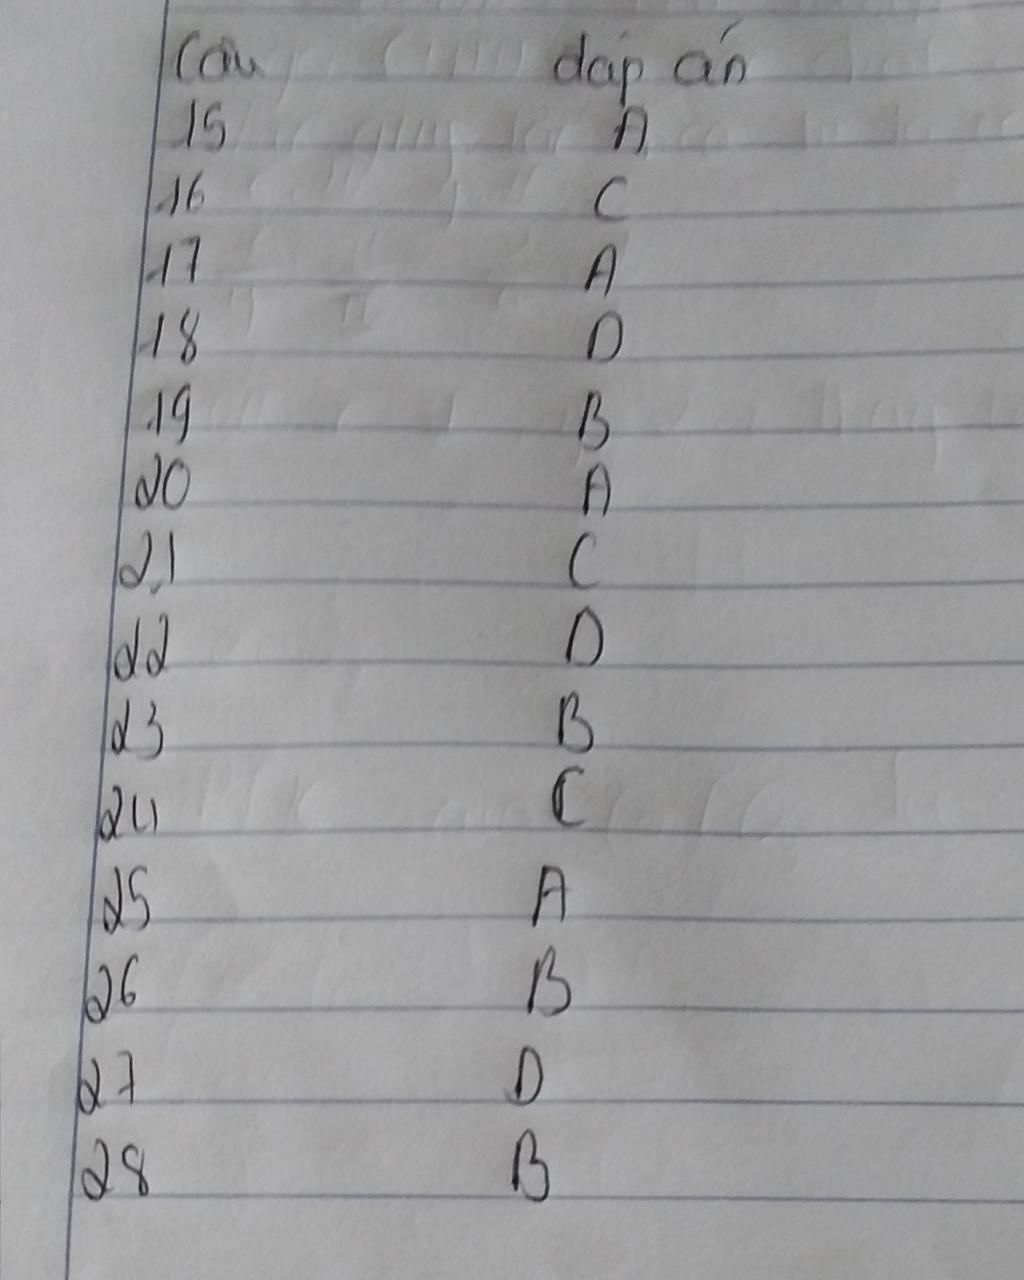 Câu đáp án
15 A
16 C
17 A
18 D
19 B
20 A
21 C
22 D
23 B
24 C
25 A
26 B
27 D
28 B